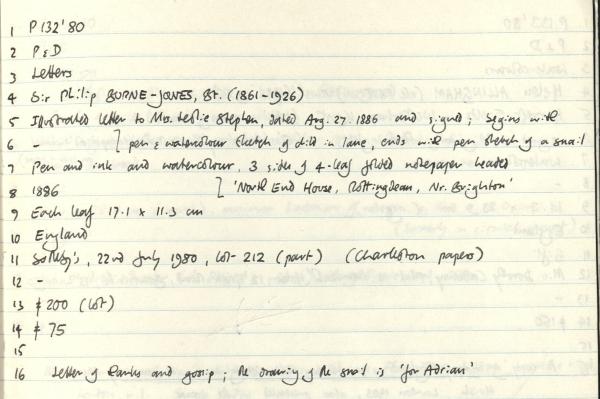 1 P.132'80
2 P & D
3 Letters
4 Sir Philip BURNE-JONES, Bt. (1861-1926)
5 Illustrated letter to Mrs. Leslie Stephen, dated Aug. 27. 1886 and signed; begins with
6 - [pen & watercolour sketch of child in lane, ends with pen sketch of a snail
7 Pen and ink and watercolour. 3 sides of 4-leaf folded notepaper headed
8 1886 ['North End House, Rottingdean, Nr. Brighton'
9 Each leaf 17.1 x 11.3 cm
10 England
11 Sotheby's, 22nd July 1980, lot 212 (part) (Charleston papers)
12 -
13 £200 (lot)
14 £75
15
16 Letter of thanks and gossip; the drawing of the snail is 'for Adrian'